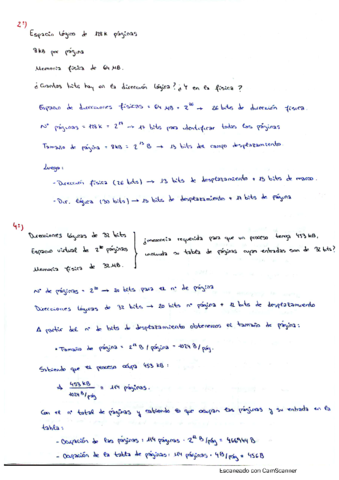 2º)
Espacio lógico de 128K páginas
8kB por página
Memoria física de 64 MB.
¿Cuántos bits hay en la dirección lógica? ¿Y en la física?
Espacio de direcciones físicas = 64 MB = 2²⁶ → 26 bits de dirección física
Nº páginas = 128K = 2¹⁷ → 17 bits para identificar todas las páginas
Tamaño de página = 8kB = 2¹³ B → 13 bits de campo desplazamiento
Luego:
- Dirección física (26 bits) → 13 bits de desplazamiento + 13 bits de marco.
- Dir. lógica (30 bits) → 13 bits de desplazamiento + 17 bits de página
4º)
Direcciones lógicas de 32 bits
Espacio virtual de 2²⁰ páginas
Memoria física de 32 MB.
¿memoria requerida para que un proceso tenga 453 kB,
incluida su tabla de páginas cuyas entradas son de 32 bits?
Nº de páginas = 2²⁰ → 20 bits para el nº de página
Direcciones lógicas de 32 bits → 20 bits nº página + 12 bits de desplazamiento
A partir del nº de bits de desplazamiento obtenemos el tamaño de página:
• Tamaño de página = 2¹² B/pág
Sabiendo que el proceso ocupa 453 kB:
453 kB
= 114 páginas.
Con el nº total de páginas y sabiendo lo que ocupan las páginas y su entrada en la
tabla:
- Ocupación de las páginas: 114 páginas · 2¹² B/pág = 466944 B
- Ocupación de la tabla de páginas: 114 páginas · 4B/pág = 456 B
Escaneado con CamScanner